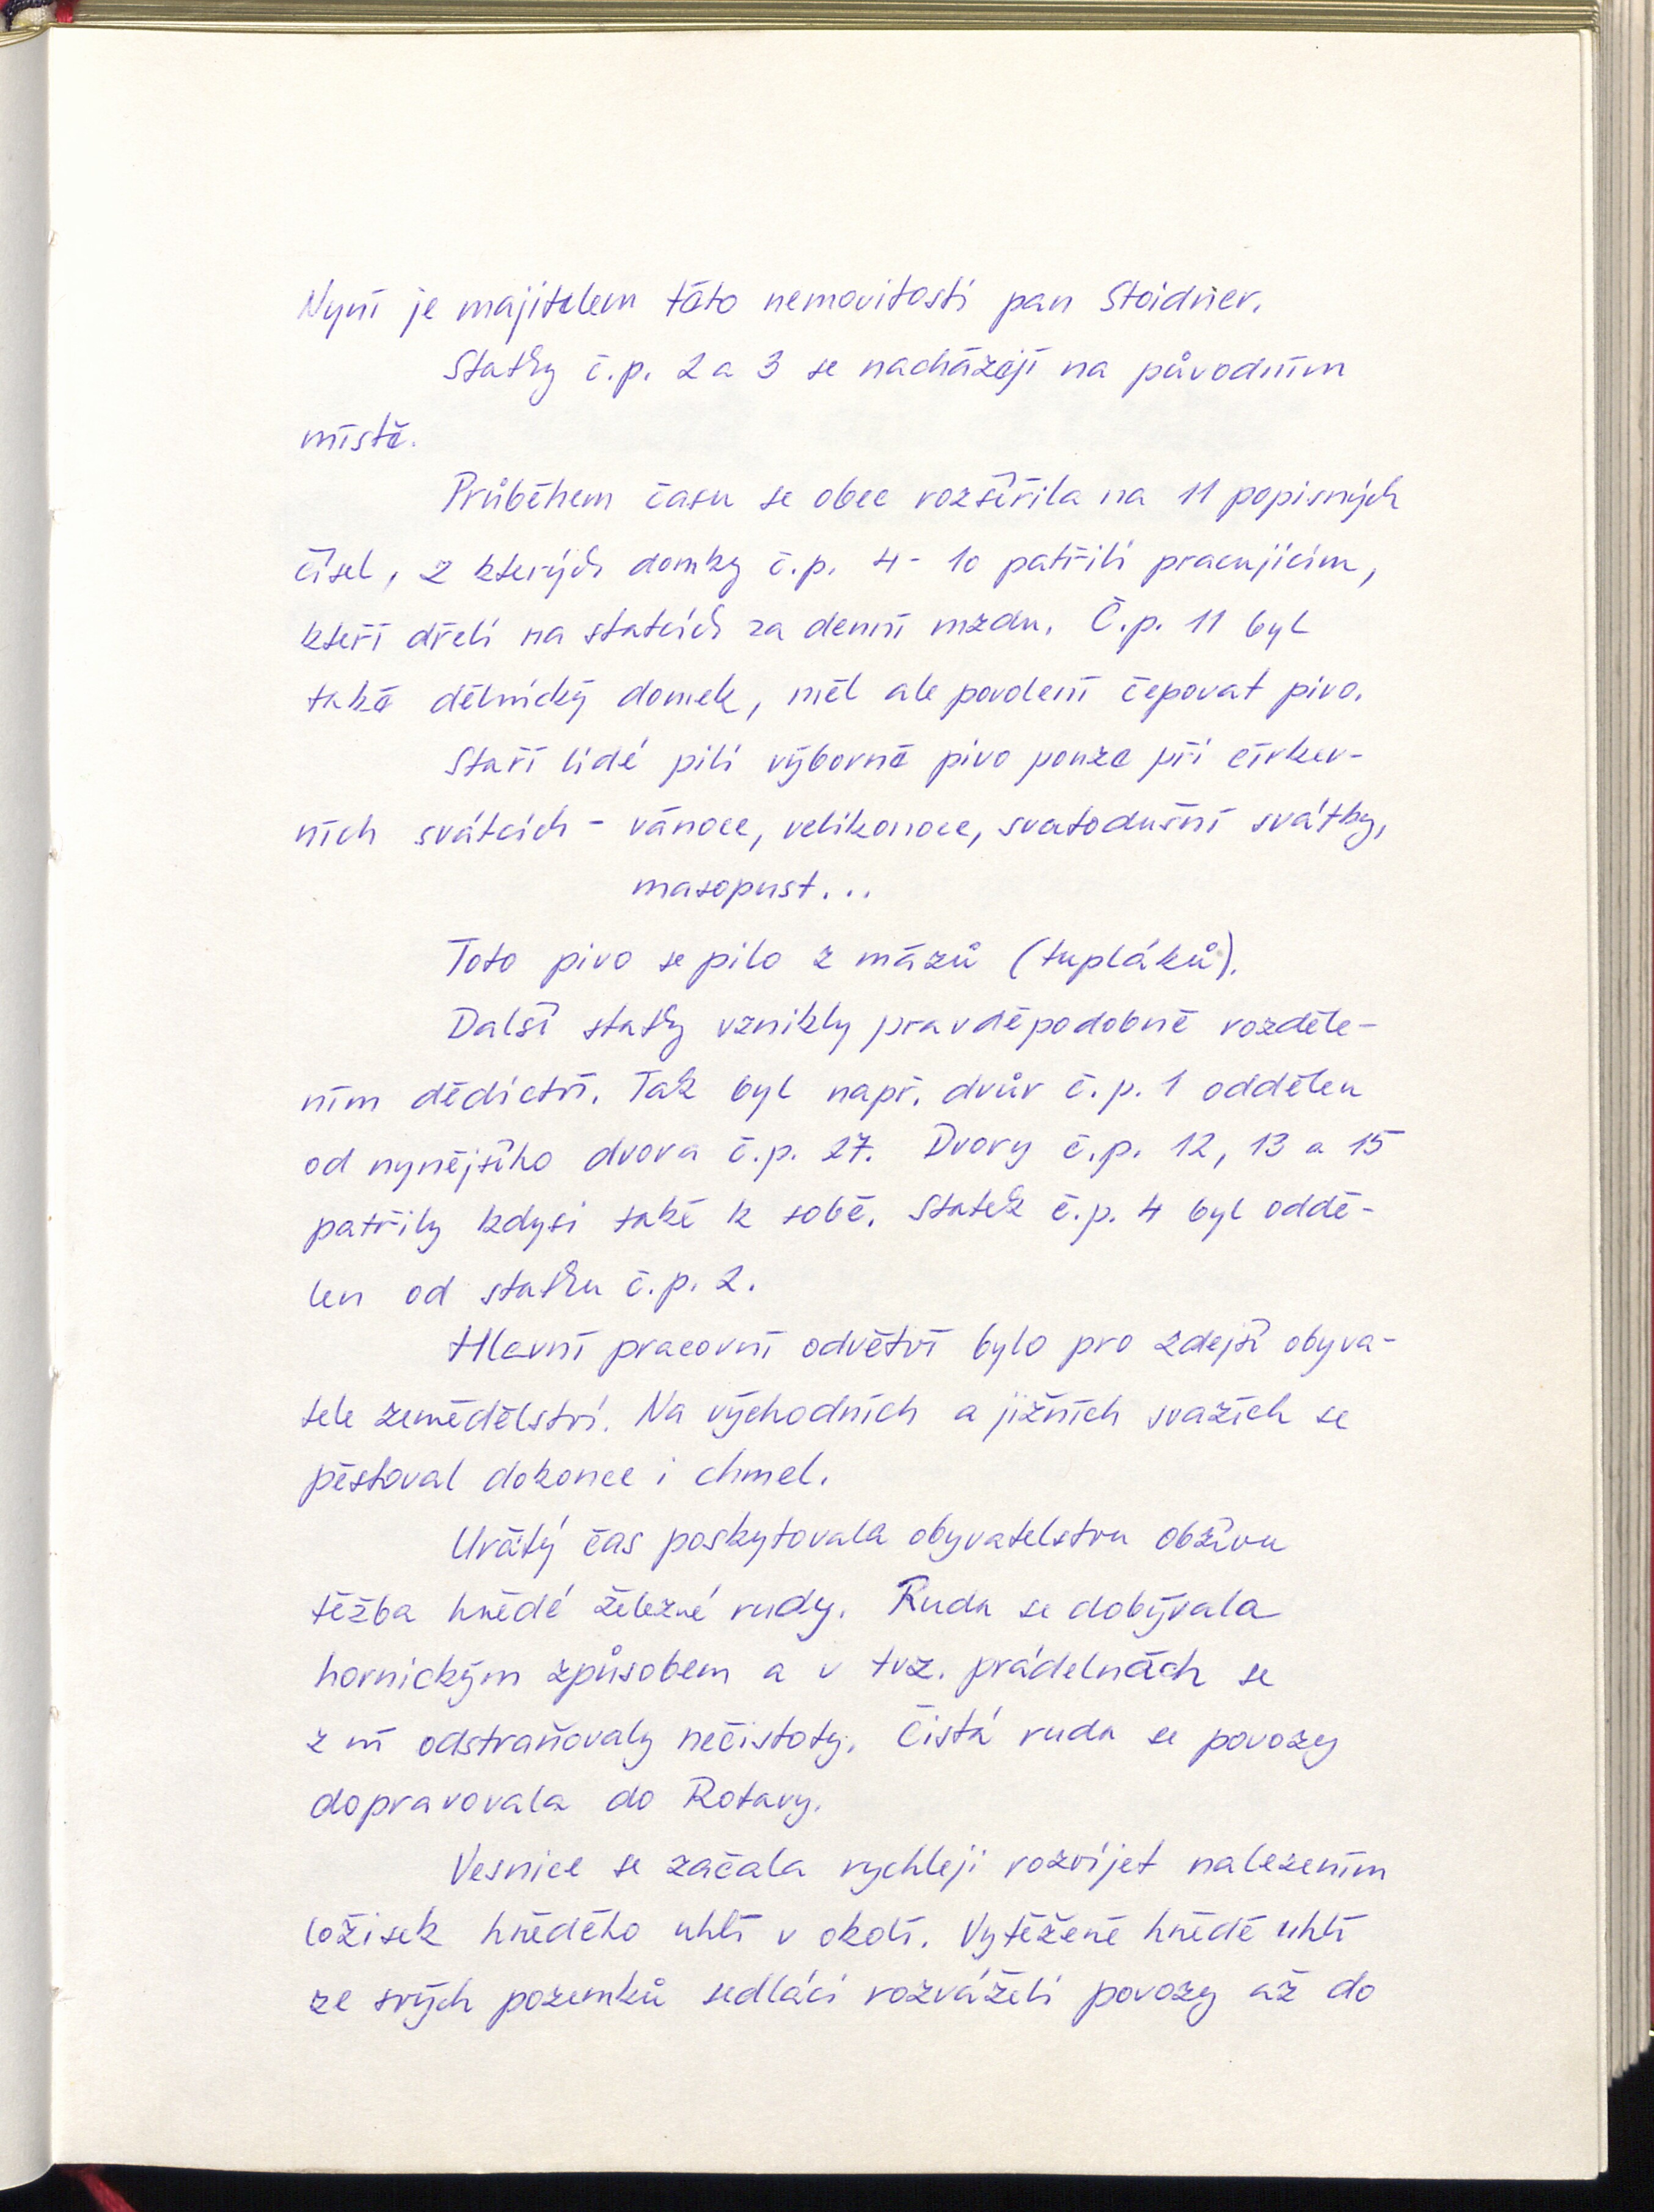 Nyní je majitelem této nemovitosti pan Stoidner.
Statky č.p. 2 a 3 se nacházejí na původním
místě.
Průběhem času se obec rozšířila na 11 popisných
čísel, z kterých domky č.p. 4 - 10 patřili pracujícím,
kteří dřeli na statcích za denní mzdu. Č.p. 11 byl
také dělnický domek, měl ale povolení čepovat pivo.
Staří lidé pili výborné pivo pouze při církev-
ních svátcích - vánoce, velikonoce, svatodušní svátky,
masopust...
Toto pivo se pilo z mázů (tupláků).
Další statky vznikly pravděpodobně rozděle-
ním dědictví. Tak byl např. dvůr č.p. 1 oddělen
od nynějšího dvora č.p. 27. Dvory č.p. 12, 13 a 15
patřily kdysi také k sobě. Statek č.p. 4 byl oddě-
len od statku č.p. 2.
Hlavní pracovní odvětví bylo pro zdejší obyva-
tele zemědělství. Na východních a jižních svazích se
pěstoval dokonce i chmel.
Určitý čas poskytovala obyvatelstvu obživu
těžba hnědé železné rudy. Ruda se dobývala
hornickým způsobem a v tvz. prádelnách se
z ní odstraňovaly nečistoty. Čistá ruda se povozy
dopravovala do Rotavy.
Vesnice se začala rychleji rozvíjet nalezením
ložisek hnědého uhlí v okolí. Vytěžené hnědé uhlí
ze svých pozemků sedláci rozváželi povozy až do